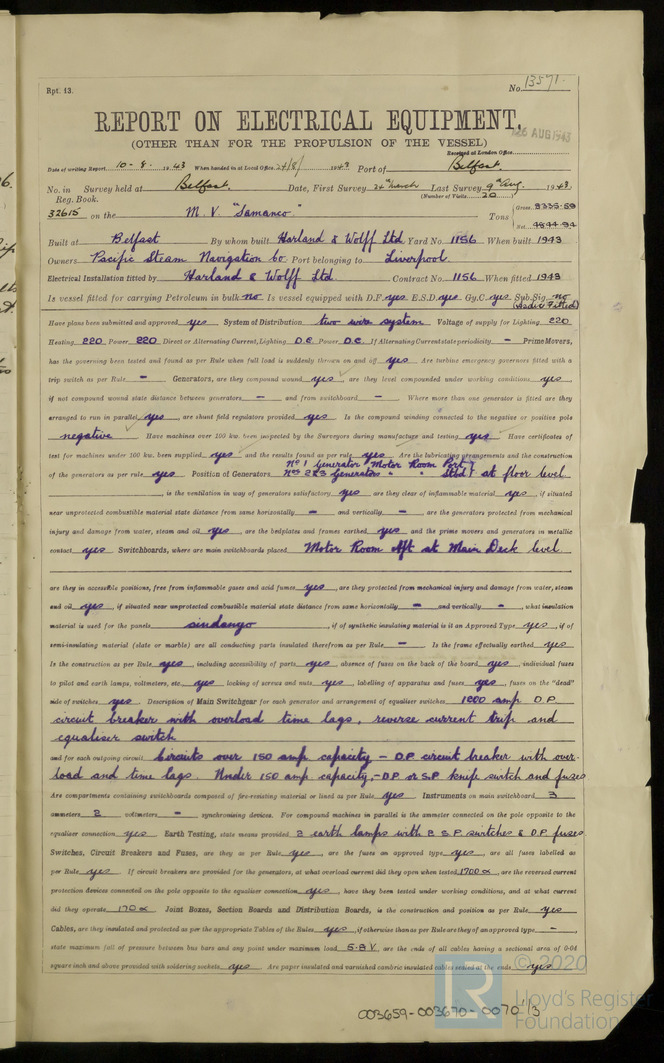 Rpt. 13.
No. 13571.
REPORT ON ELECTRICAL EQUIPMENT.
26 AUG 1943
(OTHER THAN FOR THE PROPULSION OF THE VESSEL)
Received at London Office
Date of writing Report 10-8-1943 When handed in at Local Office 24/8/1943 Port of Belfast.
No. in Survey held at Belfast. Date, First Survey 24th March Last Survey 9th Aug. 1943.
Reg. Book. (Number of Visits 20)
32615 on the M.V. "Samanco" Tons Gross 8335.59
Net 4844.94
Built at Belfast By whom built Harland & Wolff Ltd. Yard No. 1156 When built 1943
Owners Pacific Steam Navigation Co. Port belonging to Liverpool.
Electrical Installation fitted by Harland & Wolff Ltd. Contract No. 1156 When fitted 1943
Is vessel fitted for carrying Petroleum in bulk no Is vessel equipped with D.F. yes E.S.D. yes Gy.C. yes Sub.Sig. no
(Asdic Fitted)
Have plans been submitted and approved yes System of Distribution two wire system Voltage of supply for Lighting 220
Heating 220 Power 220 Direct or Alternating Current, Lighting D.C. Power D.C. If Alternating Current state periodicity - Prime Movers,
has the governing been tested and found as per Rule when full load is suddenly thrown on and off yes Are turbine emergency governors fitted with a
trip switch as per Rule - Generators, are they compound wound yes, are they level compounded under working conditions yes,
if not compound wound state distance between generators - and from switchboard - Where more than one generator is fitted are they
arranged to run in parallel yes, are shunt field regulators provided yes Is the compound winding connected to the negative or positive pole
negative Have machines over 100 kw. been inspected by the Surveyors during manufacture and testing yes Have certificates of
test for machines under 100 kw. been supplied yes and the results found as per rule yes Are the lubricating arrangements and the construction
of the generators as per rule yes Position of Generators No 1 Generator Motor Room Port
Nos 2 & 3 Generators " " Stbd at floor level
, is the ventilation in way of generators satisfactory yes are they clear of inflammable material yes if situated
near unprotected combustible material state distance from same horizontally - and vertically -, are the generators protected from mechanical
injury and damage from water, steam and oil yes, are the bedplates and frames earthed yes and the prime movers and generators in metallic
contact yes Switchboards, where are main switchboards placed Motor Room Aft at Main Deck level
are they in accessible positions, free from inflammable gases and acid fumes yes, are they protected from mechanical injury and damage from water, steam
and oil yes, if situated near unprotected combustible material state distance from same horizontally - and vertically -, what insulation
material is used for the panels sindanyo, if of synthetic insulating material is it an Approved Type yes, if of
semi-insulating material (slate or marble) are all conducting parts insulated therefrom as per Rule - Is the frame effectually earthed yes
Is the construction as per Rule, yes, including accessibility of parts yes, absence of fuses on the back of the board yes, individual fuses
to pilot and earth lamps, voltmeters, etc. yes locking of screws and nuts yes, labelling of apparatus and fuses yes, fuses on the "dead"
side of switches yes. Description of Main Switchgear for each generator and arrangement of equaliser switches 1200 amp D.P.
circuit breaker with overload time lags, reverse current trip and
equaliser switch
and for each outgoing circuit Circuits over 150 amp capacity - D.P. circuit breaker with over-
load and time lags. Under 150 amp capacity, - D.P or S.P. knife switch and fuses
Are compartments containing switchboards composed of fire-resisting material or lined as per Rule yes Instruments on main switchboard 3
ammeters 2 voltmeters - synchronising devices. For compound machines in parallel is the ammeter connected on the pole opposite to the
equaliser connection yes Earth Testing, state means provided 2 earth lamps with 2 S.P. switches & D.P fuses
Switches, Circuit Breakers and Fuses, are they as per Rule yes, are the fuses an approved type yes, are all fuses labelled as
per Rule yes If circuit breakers are provided for the generators, at what overload current did they open when tested 1700 a, are the reversed current
protection devices connected on the pole opposite to the equaliser connection yes, have they been tested under working conditions, and at what current
did they operate 170 a Joint Boxes, Section Boards and Distribution Boards, is the construction and position as per Rule yes
Cables, are they insulated and protected as per the appropriate Tables of the Rules yes, if otherwise than as per Rule are they of an approved type -,
state maximum fall of pressure between bus bars and any point under maximum load 5.8 V, are the ends of all cables having a sectional area of 0.04
square inch and above provided with soldering sockets yes Are paper insulated and varnished cambric insulated cables sealed at the ends yes
© 2020
LR
Lloyd's Register
Foundation
003659-003670-0070 1/3